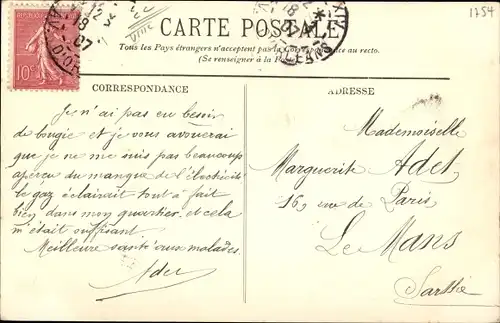 1754
CARTE POSTALE
Tous les Pays étrangers n'acceptent pas la Correspondance au recto.
(Se renseigner à la Poste)
CORRESPONDANCE
Je n'ai pas eu besoin
de bougie et je vous avouerai
que je ne me suis pas beaucoup
aperçu du manque de l'électricité
le gaz éclairait tout à fait
bien dans mon quartier et cela
m'était suffisant.
Meilleure santé aux malades.
ADRESSE
Mademoiselle
Marguerite Adet
16, rue de Paris
Le Mans
Sarthe
10c